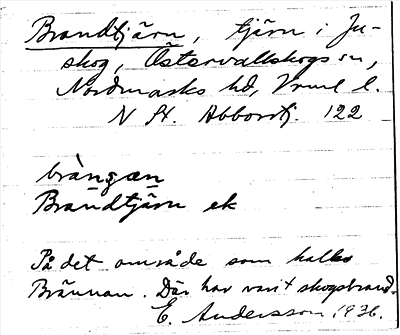 Brandtjärn, tjärn i Ju-
skog, Östervallskogs sn,
Nordmarks hd, Vrml l.
N St. Abborrtj. 122
bràngæn
Brandtjärn ek
På det område som kallas
Brännan. Där har varit skogsbrand.
E. Andersson 1936.